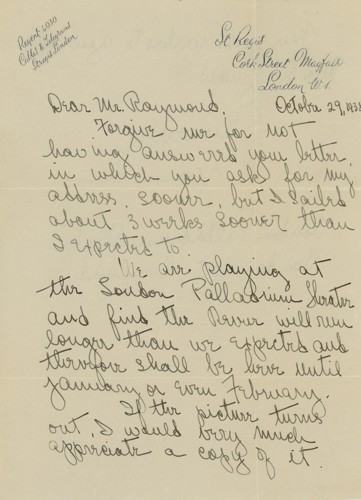 Regent 6030
Cables & Telegrams
Stregis London
St Regis
Cork Street Mayfair
London W.1.
Dear Mr. Raymond, October 29, 1938
Forgive me for not
having answered your letter,
in which you ask for my
address, sooner, but I sailed
about 3 weeks sooner than
I expected to.
We are playing at
the London Palladium Theater
and find the Revue will run
longer than we expected and
therefore shall be here until
January or even February.
If the picture turns
out, I would very much
appreciate a copy of it.